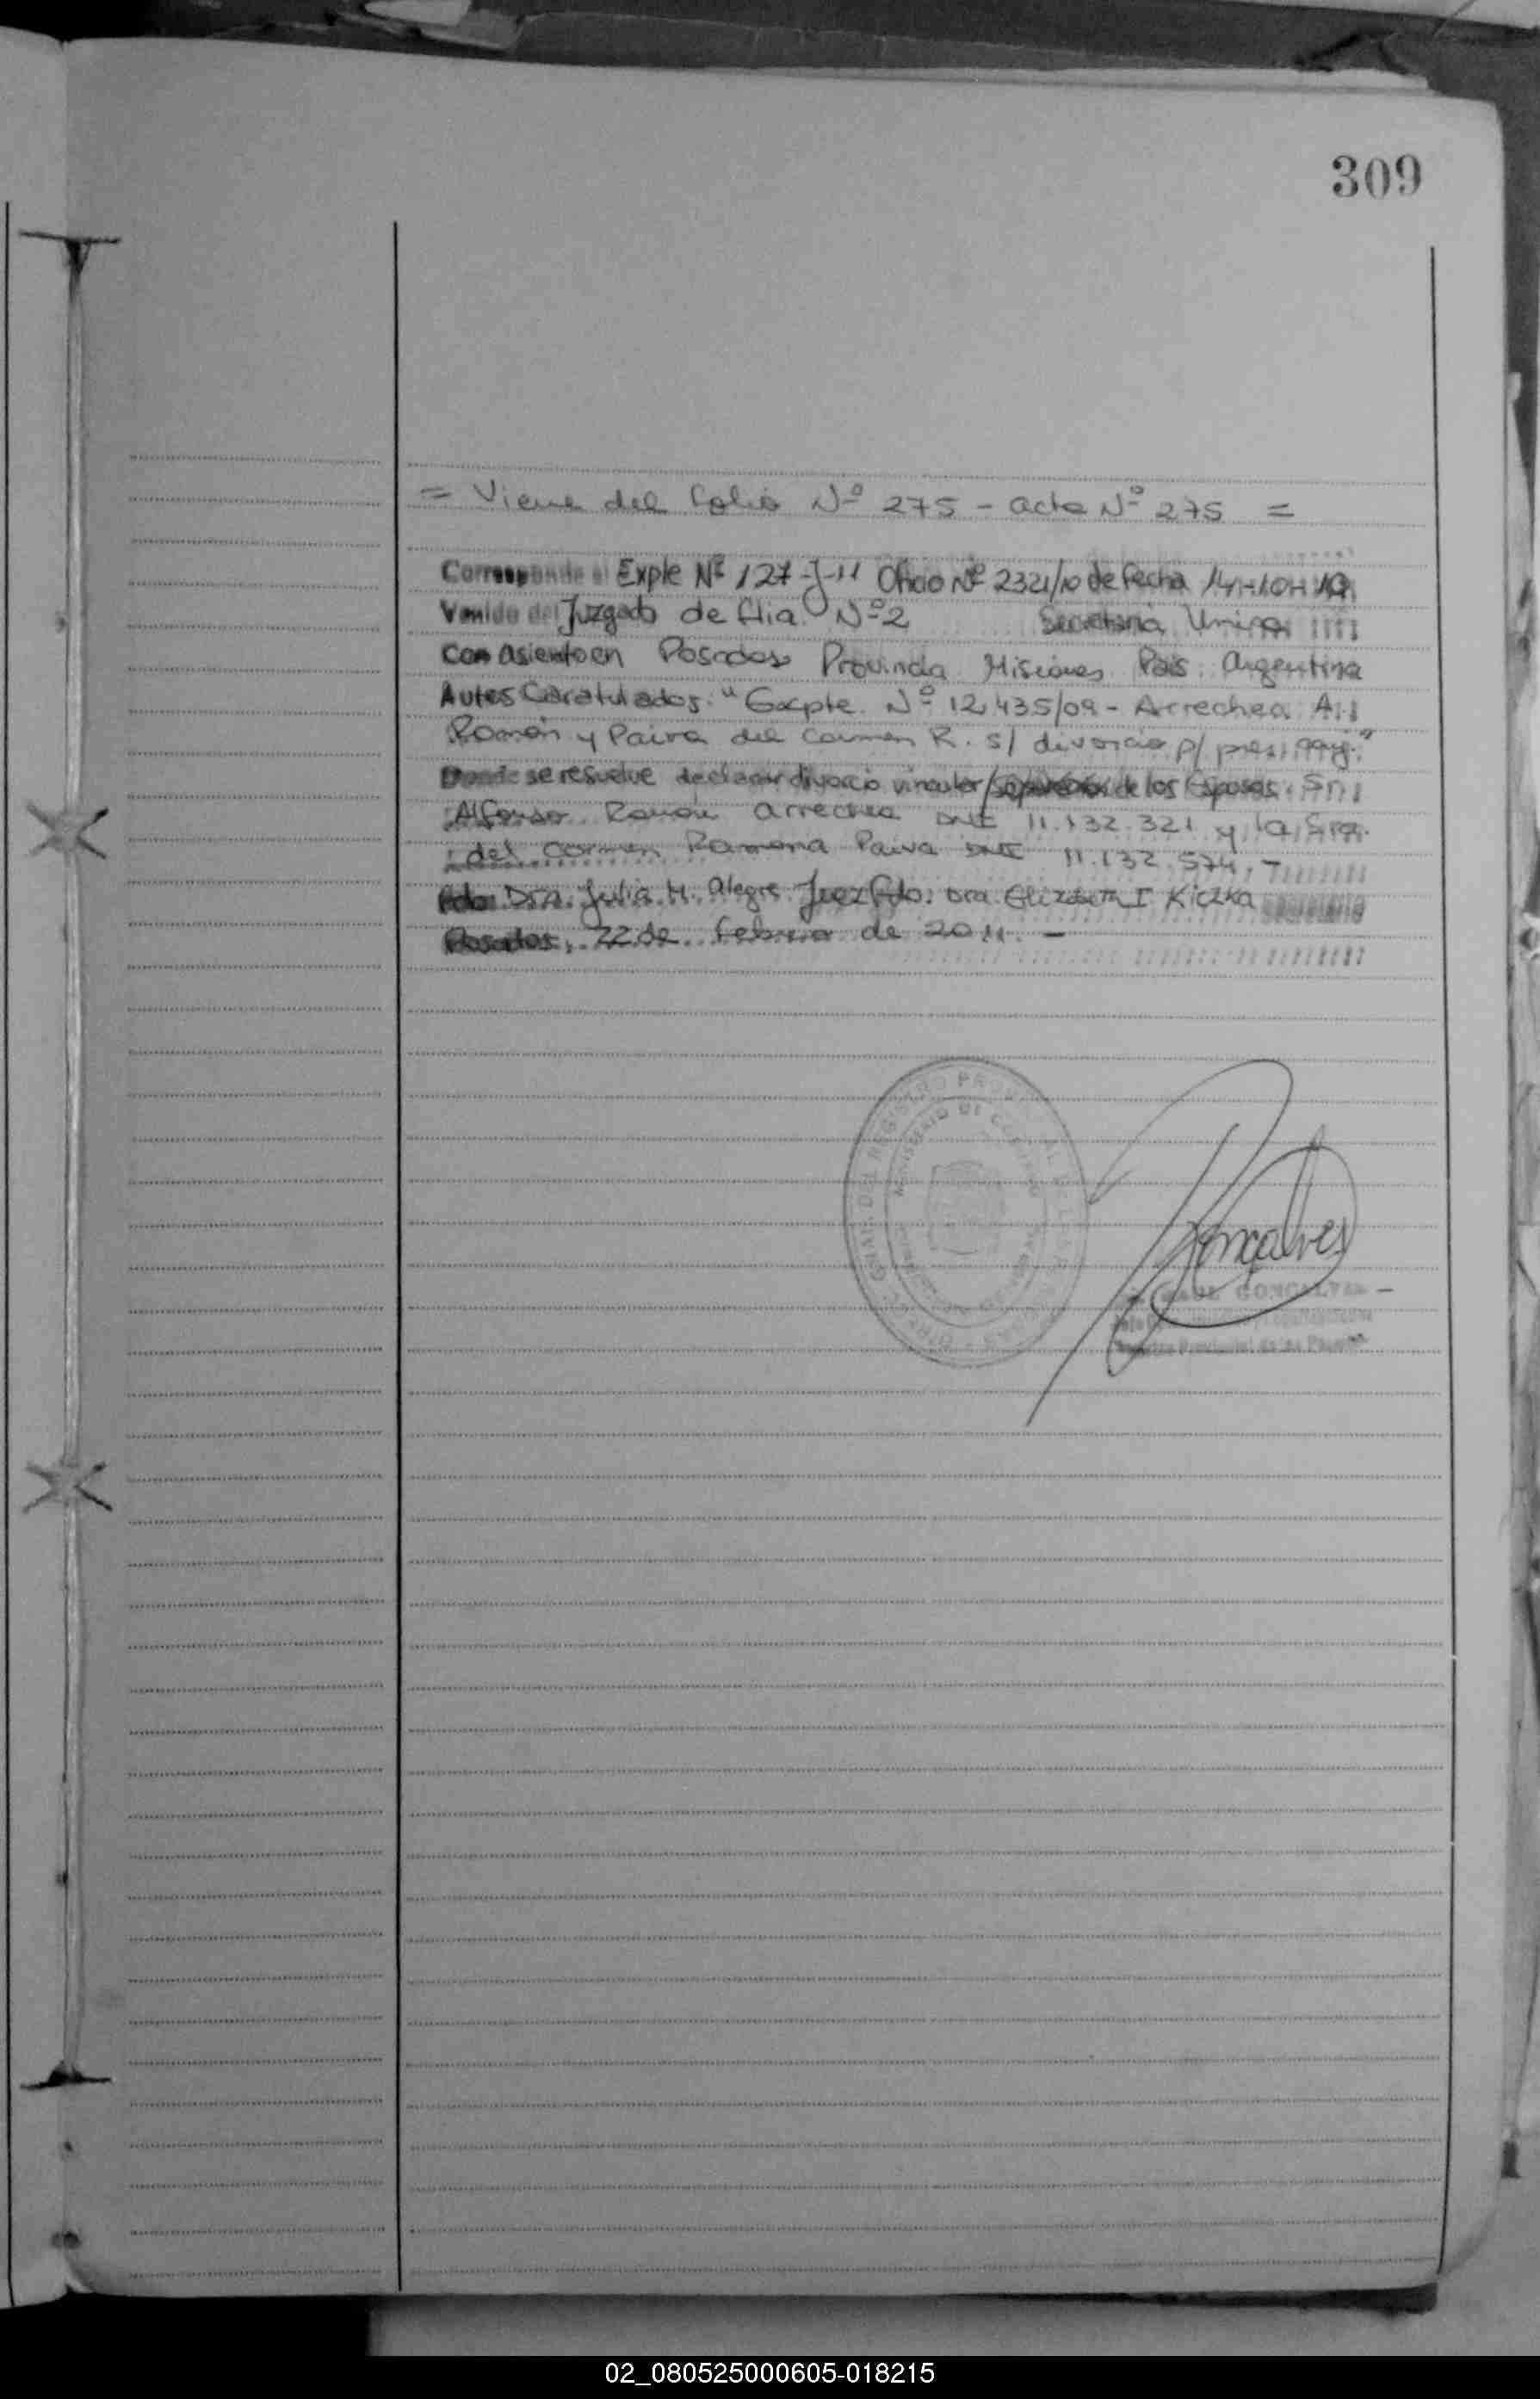 309
= Viene del folio Nº 275 - acta Nº 275 =
Corresponde al Expte Nº 127-J-11 Oficio Nº 2321/10 de fecha 14-10-10
Venido del Juzgado de flia Nº 2 Secretaria Unica
Con asiento en Posadas Provincia Misiones Pais Argentina
Autos Caratulados: "Expte. Nº 12.435/09 - Arrechea A.
Román y Paiva del Carmen R. s/ divorcio p/ pres.
Donde se resuelve declarar divorcio vincular/ de los Esposos Sr.
Alfonso Ramón Arrechea DNI 11.132.321 y la Sra.
del Carmen Ramona Paiva DNI 11.132.574.-
Fdo: Dra. Julia M. Alegre Juez Fdo: Dra. Elizabeth I Kiczka
Posadas, 22 de febrero de 2011. -
Gonçalves
RAUL GONCALVES
02_080525000605-018215